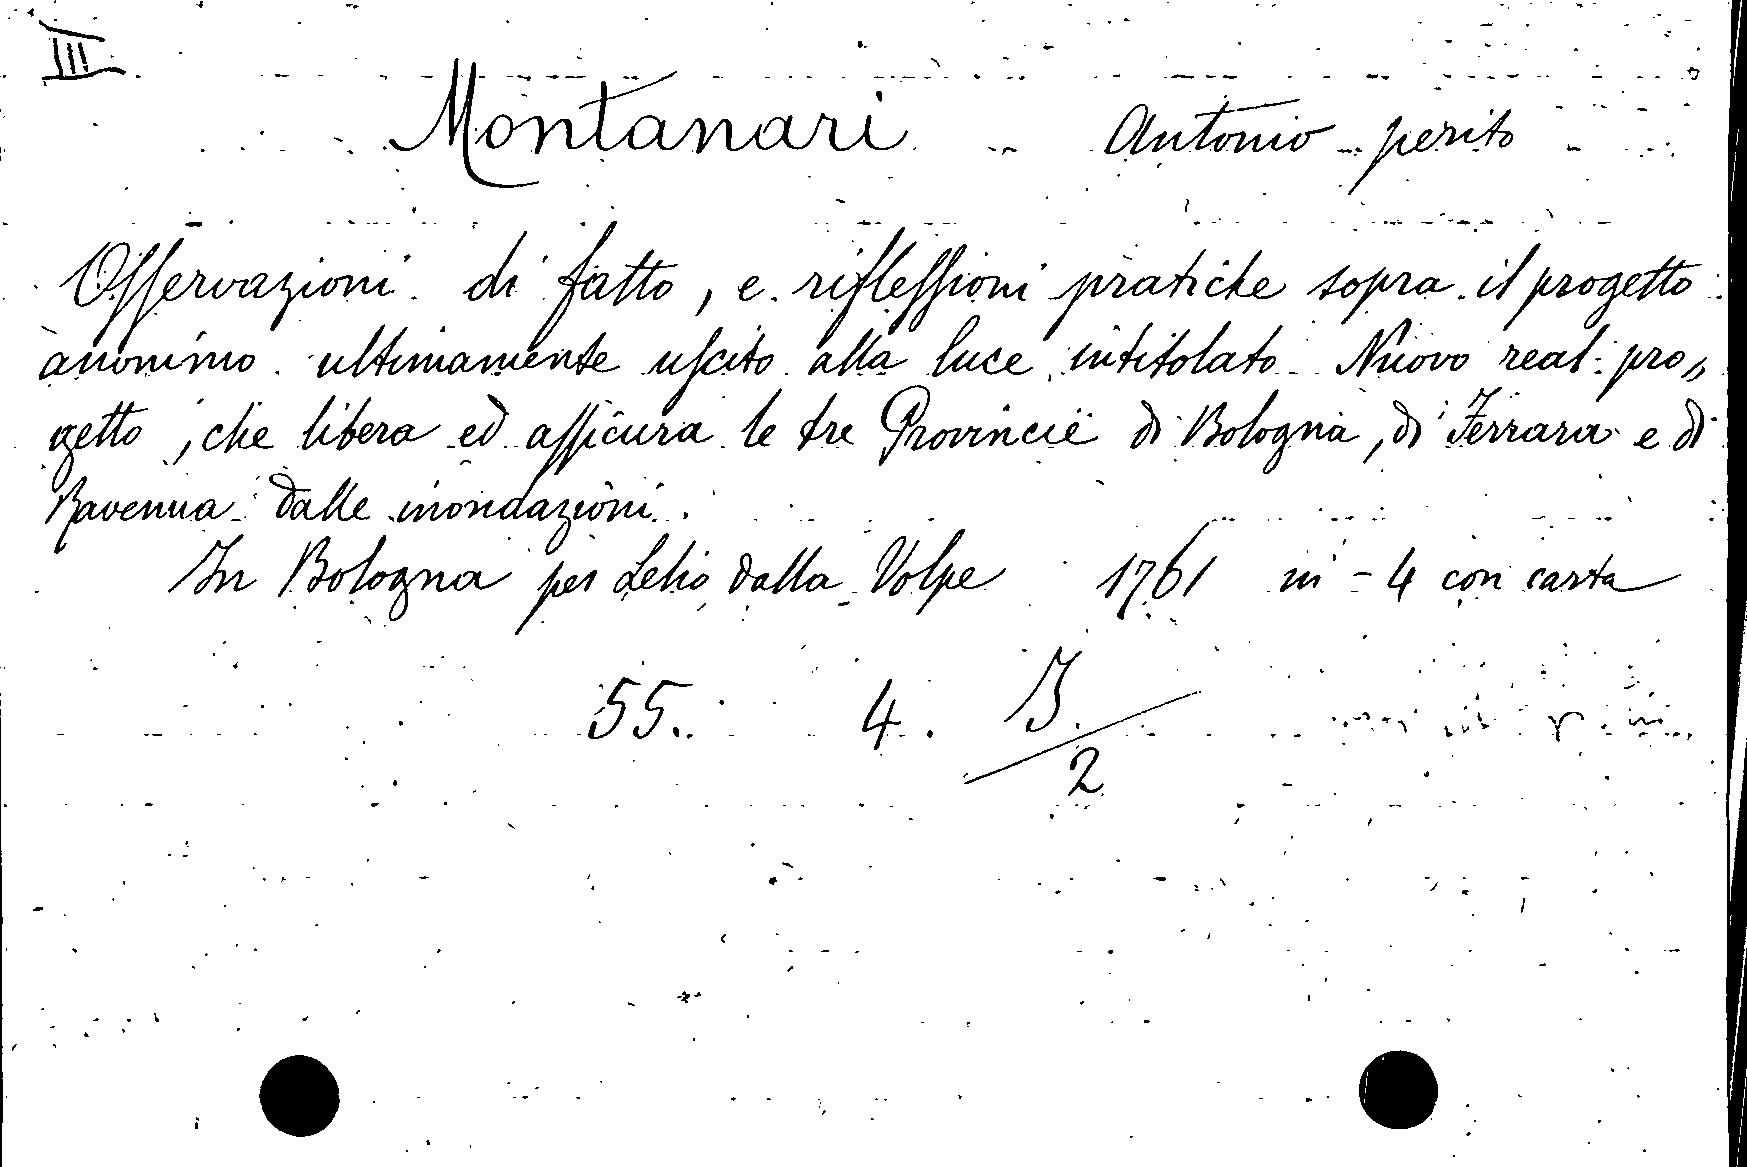 III
Montanari - Antonio - perito
Osservazioni di fatto, e riflessioni pratiche sopra il progetto
anonimo ultimamente uscito alla luce intitolato Nuovo real pro„
getto, che libera ed assicura le tre Provincie di Bologna, di Ferrara e di
Ravenna dalle inondazioni.
In Bologna per Lelio dalla Volpe 1761 in-4 con carta
55. 4. I./2